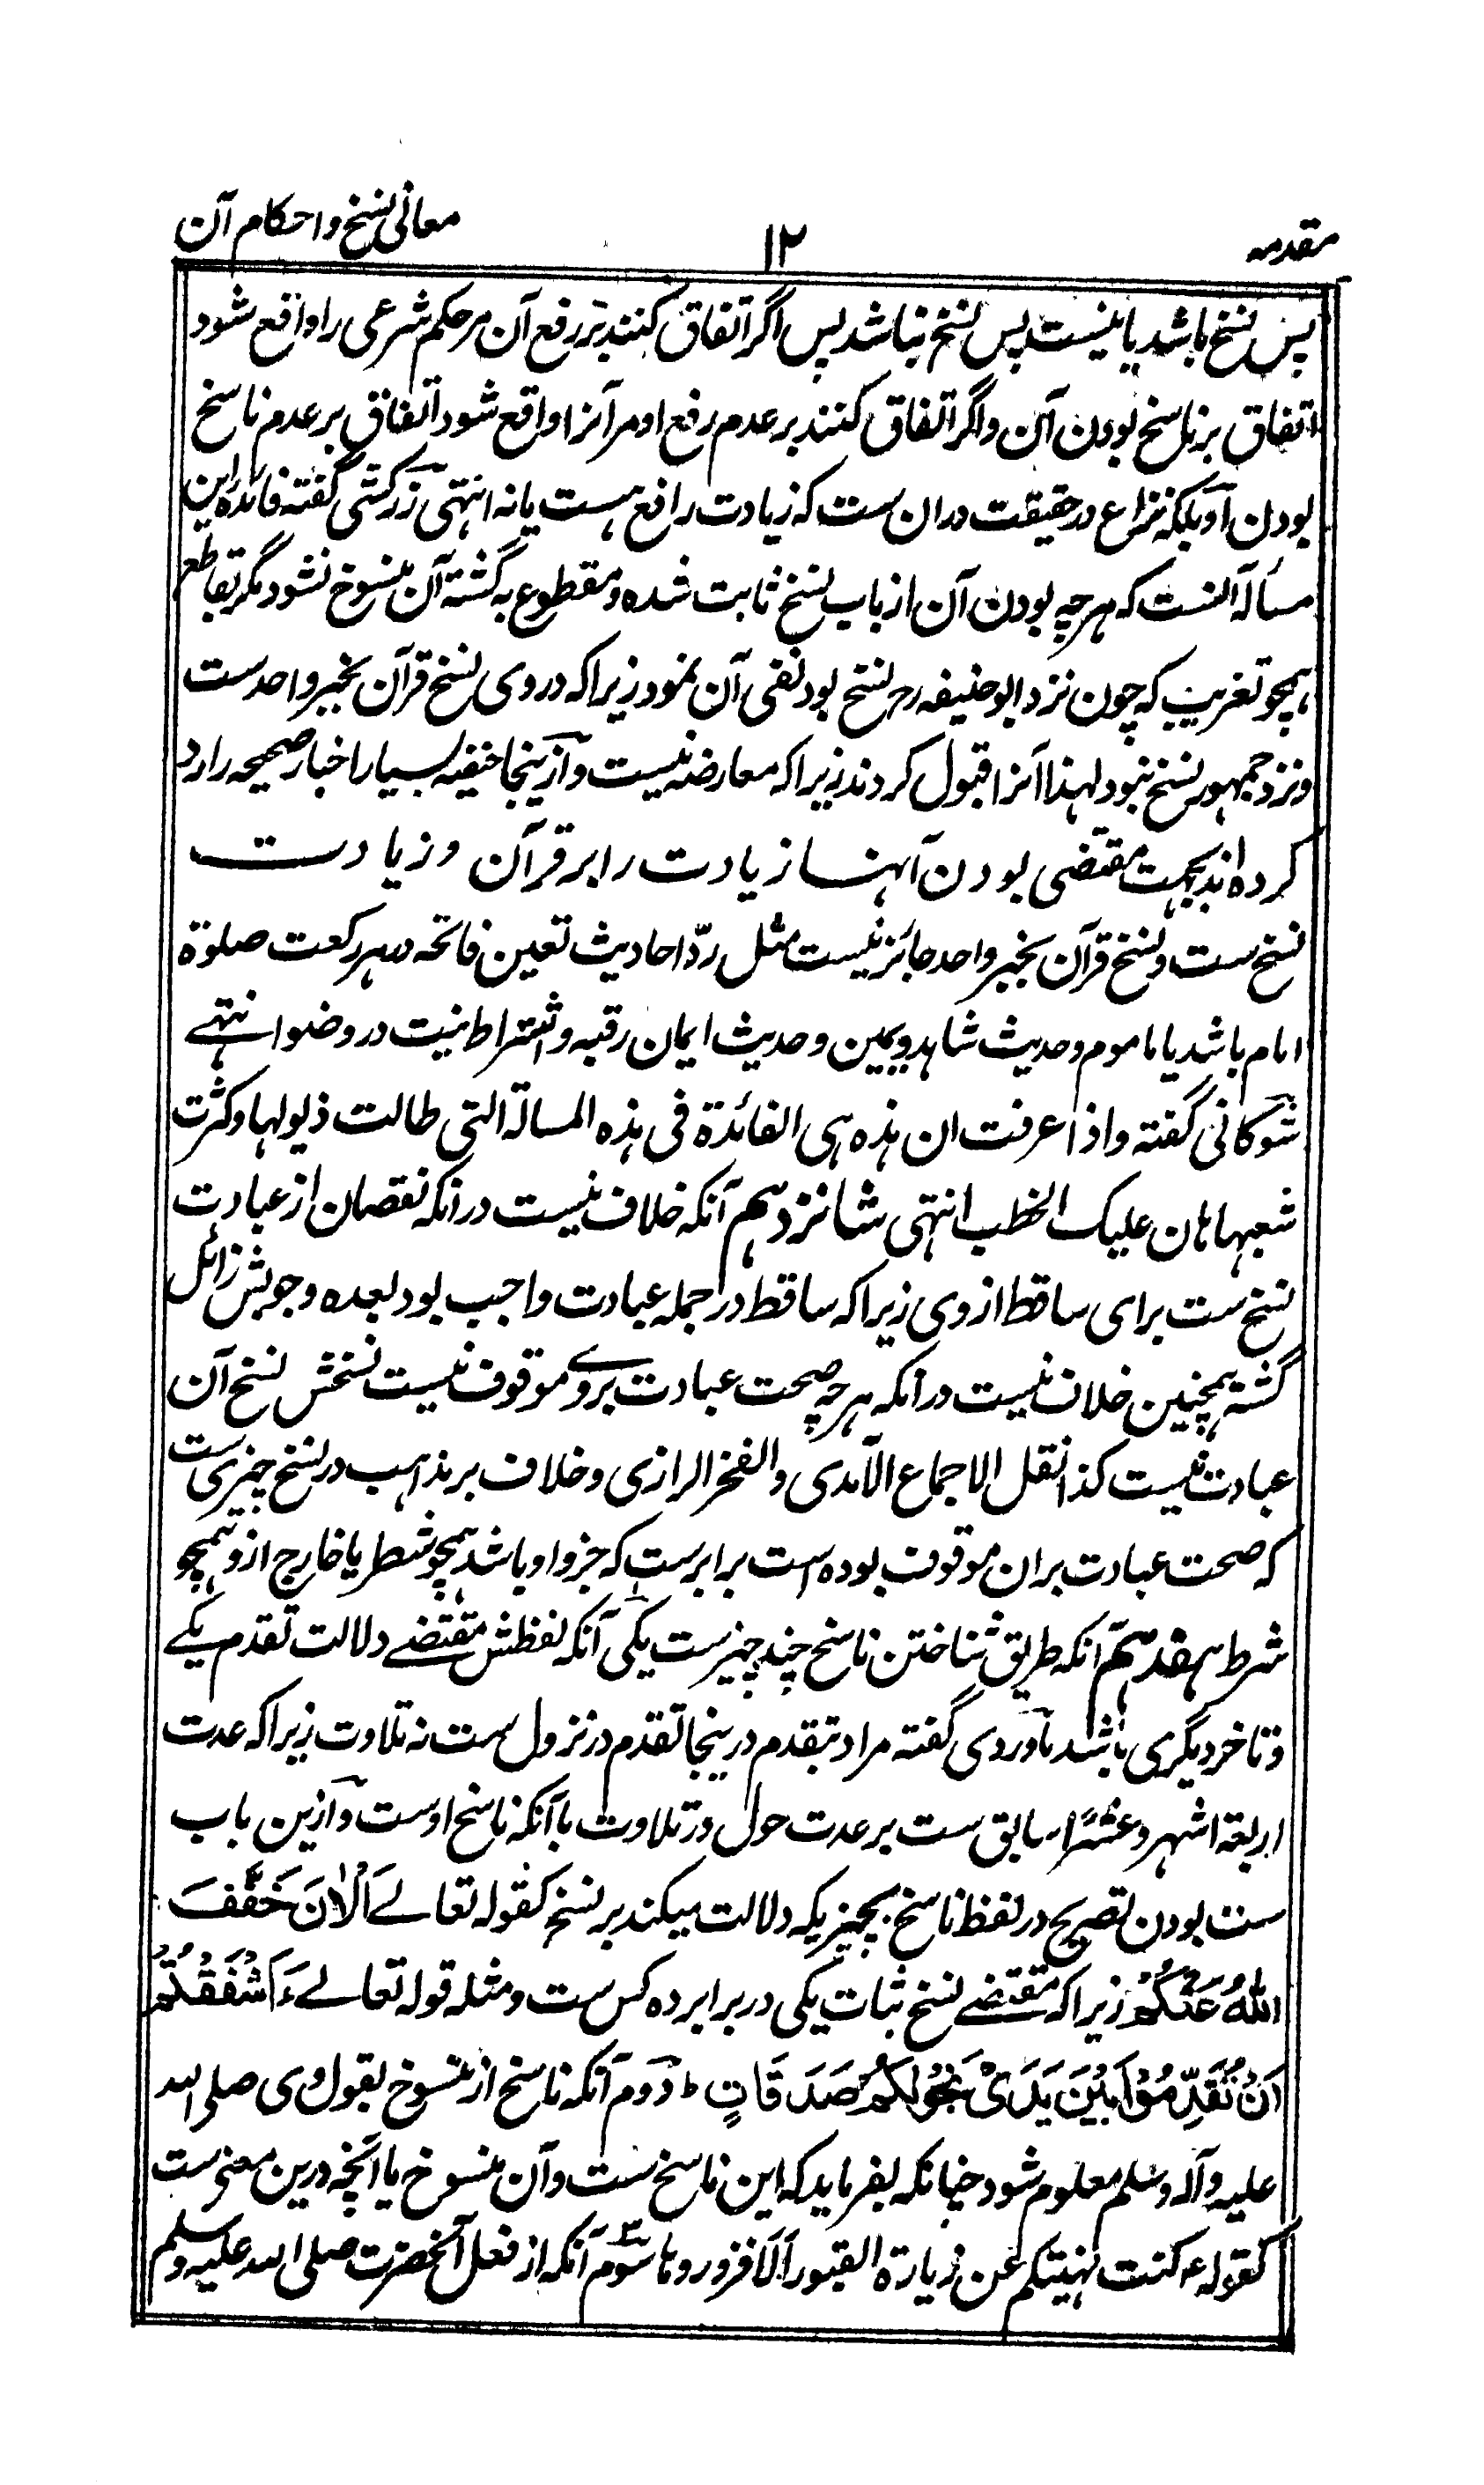 مقدمه ۱۲ معانی نسخ و احکام آن
پس نسخ باشد یا نیست پس نسخ نباشد پس اگر اتفاق کنند بر رفع آن مر حکم شرعی را واقع شود
اتفاق بر ناسخ بودن آن و اگر اتفاق کنند بر عدم رفع او مر آنرا واقع شود اتفاق بر عدم ناسخ
بودن او بلکه نزاع در حقیقت دران ست که زیادت رافع هست یا نه انتهی زرکشی گفته فائده این
مسأله آنست که هرچه بودن آن از باب نسخ ثابت شده و مقطوع به گشته آن منسوخ نشود مگر بقاطع
همچو تغریب که چون نزد ابوحنیفه رح نسخ بود نفی آن نمود زیرا که در وی نسخ قرآن بخبر واحد ست
و نزد جمهور نسخ نبود لهذا آنرا قبول کردند زیرا که معارضه نیست و ازینجا حنفیه بسیار اخبار صحیحه را رد
کرده اند بجهت مقتضی بودن آنها زیادت را بر قرآن و زیادت
نسخ ست و نسخ قرآن بخبر واحد جائز نیست مثل ردّ احادیث تعین فاتحه در هر رکعت صلوة
امام باشد یا ماموم و حدیث شاهد و یمین و حدیث ایمان رقبه و اشتراط نیت در وضو انتهے
شوکانی گفته و اذا عرفت ان هذه هی الفائدة فی هذه المسالة التی طالت ذیولها و کثرت
شعبها هان علیک الخطب انتهی شانزدهم آنکه خلاف نیست درانکه نقصان از عبادت
نسخ ست برای ساقط از وی زیرا که ساقط در جمله عبادت واجب بود بعده وجوبش زائل
گشته همچنین خلاف نیست درانکه هرچه صحت عبادت بروے موقوف نیست نسخش نسخ آن
عبادت نیست کذا نقل الاجماع الآمدی والفخر الرازی و خلاف بر مذاهب در نسخ چیزی ست
که صحت عبادت بران موقوف بوده است برابرست که جزو او باشد همچو شطر یا خارج ازو همچو
شرط هفدهم آنکه طریق شناختن ناسخ چند چیزست یکی آنکه لفظش مقتضے دلالت تقدم یکے
و تاخر دیگری باشد ماوردی گفته مراد بتقدم درینجا تقدم در نزول ست نه تلاوت زیرا که عدت
اربعة اشهر و عشرًا سابق ست بر عدت حول در تلاوت با آنکه ناسخ اوست و ازین باب
ست بودن تصریح در لفظ ناسخ بچیزیکه دلالت میکند بر نسخ کقوله تعالے اَلْاٰنَ خَفَّفَ
اللّٰهُ عَنْكُمْ زیرا که مقتضے نسخ ثبات یکی در برابر ده کس ست و مثله قوله تعالے ءَاَشْفَقْتُمْ
اَنْ تُقَدِّمُوْا بَيْنَ يَدَيْ نَجْوٰىكُمْ صَدَقَاتٍ ط دوم آنکه ناسخ از منسوخ بقول وی صلی الله
علیه وآله وسلم معلوم شود چنانکه بفرماید که این ناسخ ست و آن منسوخ یا آنچه درین معنی ست
کقوله ع کنت نهیتکم عن زیارة القبور اَلَا فزوروها سوم آنکه از فعل آنحضرت صلی الله علیه وسلم